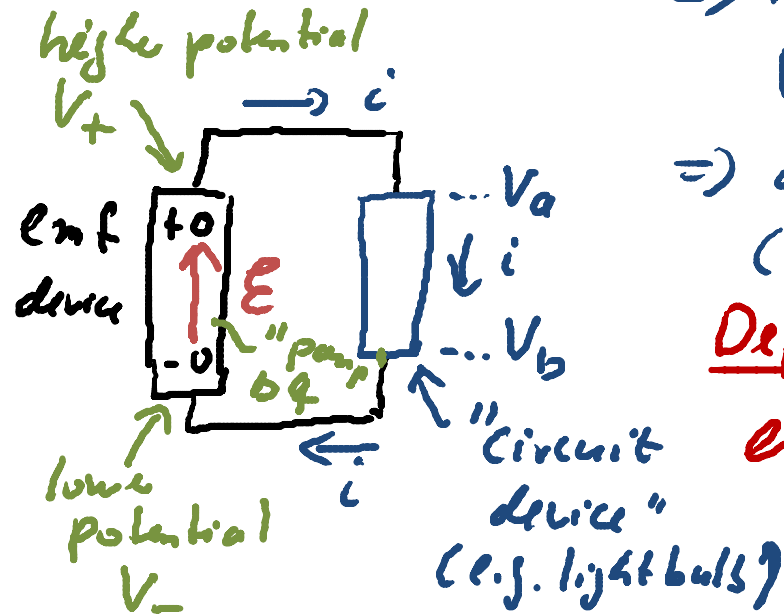 highe potential
V+
→ i
⇒)
emf
device
+o
-o
ε
"pump"
δq
... Va
i
... Vb
⇒)
(
De
e
lower
potential
V-
i
"circuit
device"
(e.g. lightbulb)